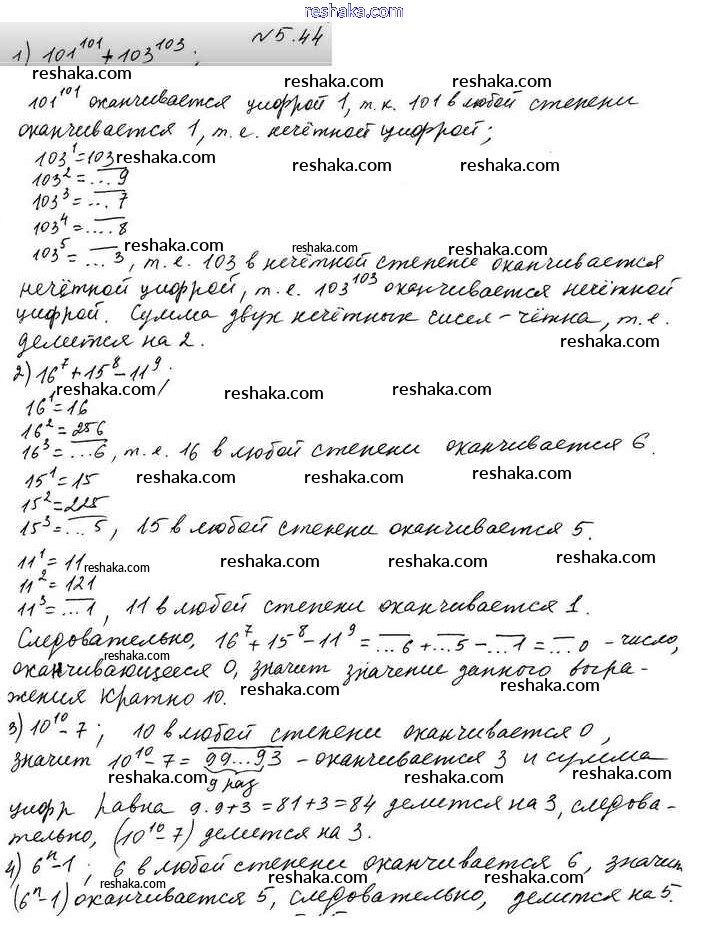 www.reshaka.com
№5.44
1) 101^101 + 103^103;
reshaka.com reshaka.com
101^101 оканчивается цифрой 1, т.к. 101 в любой степени
оканчивается 1, т.е. нечётной цифрой;
103^1 = 103 reshaka.com reshaka.com reshaka.com
103^2 = ...9
103^3 = ...7
103^4 = ....8
reshaka.com reshaka.com reshaka.com
103^5 = ...3, т.е. 103 в нечётной степени оканчивается
нечётной цифрой, т.е. 103^103 оканчивается нечётной
цифрой. Сумма двух нечётных чисел – чётна, т.е.
делится на 2. reshaka.com
2) 16^7 + 15^8 – 11^9.
reshaka.com reshaka.com
16^1 = 16
16^2 = 256
16^3 = ...6, т.е. 16 в любой степени оканчивается 6.
15^1 = 15 reshaka.com reshaka.com reshaka.com
15^2 = 225
15^3 = ...5, 15 в любой степени оканчивается 5.
11^1 = 11 reshaka.com reshaka.com reshaka.com reshaka.com
11^2 = 121
11^3 = ...1, 11 в любой степени оканчивается 1.
Следовательно, 16^7 + 15^8 – 11^9 = ...6 + ...5 – ...1 = ...0 – число,
reshaka.com
оканчивающееся 0, значит значение данного выра-
жения кратно 10. reshaka.com reshaka.com
3) 10^10 – 7; 10 в любой степени оканчивается 0,
значит 10^10 – 7 = 99...93 – оканчивается 3 и сумма
reshaka.com 9 раз reshaka.com reshaka.com
цифр равна 9·9+3 = 81+3 = 84 делится на 3, следова-
тельно, (10^10 – 7) делится на 3.
4) 6^n – 1; 6 в любой степени оканчивается 6, значит
reshaka.com reshaka.com reshaka.com
(6^n – 1) оканчивается 5, следовательно, делится на 5.